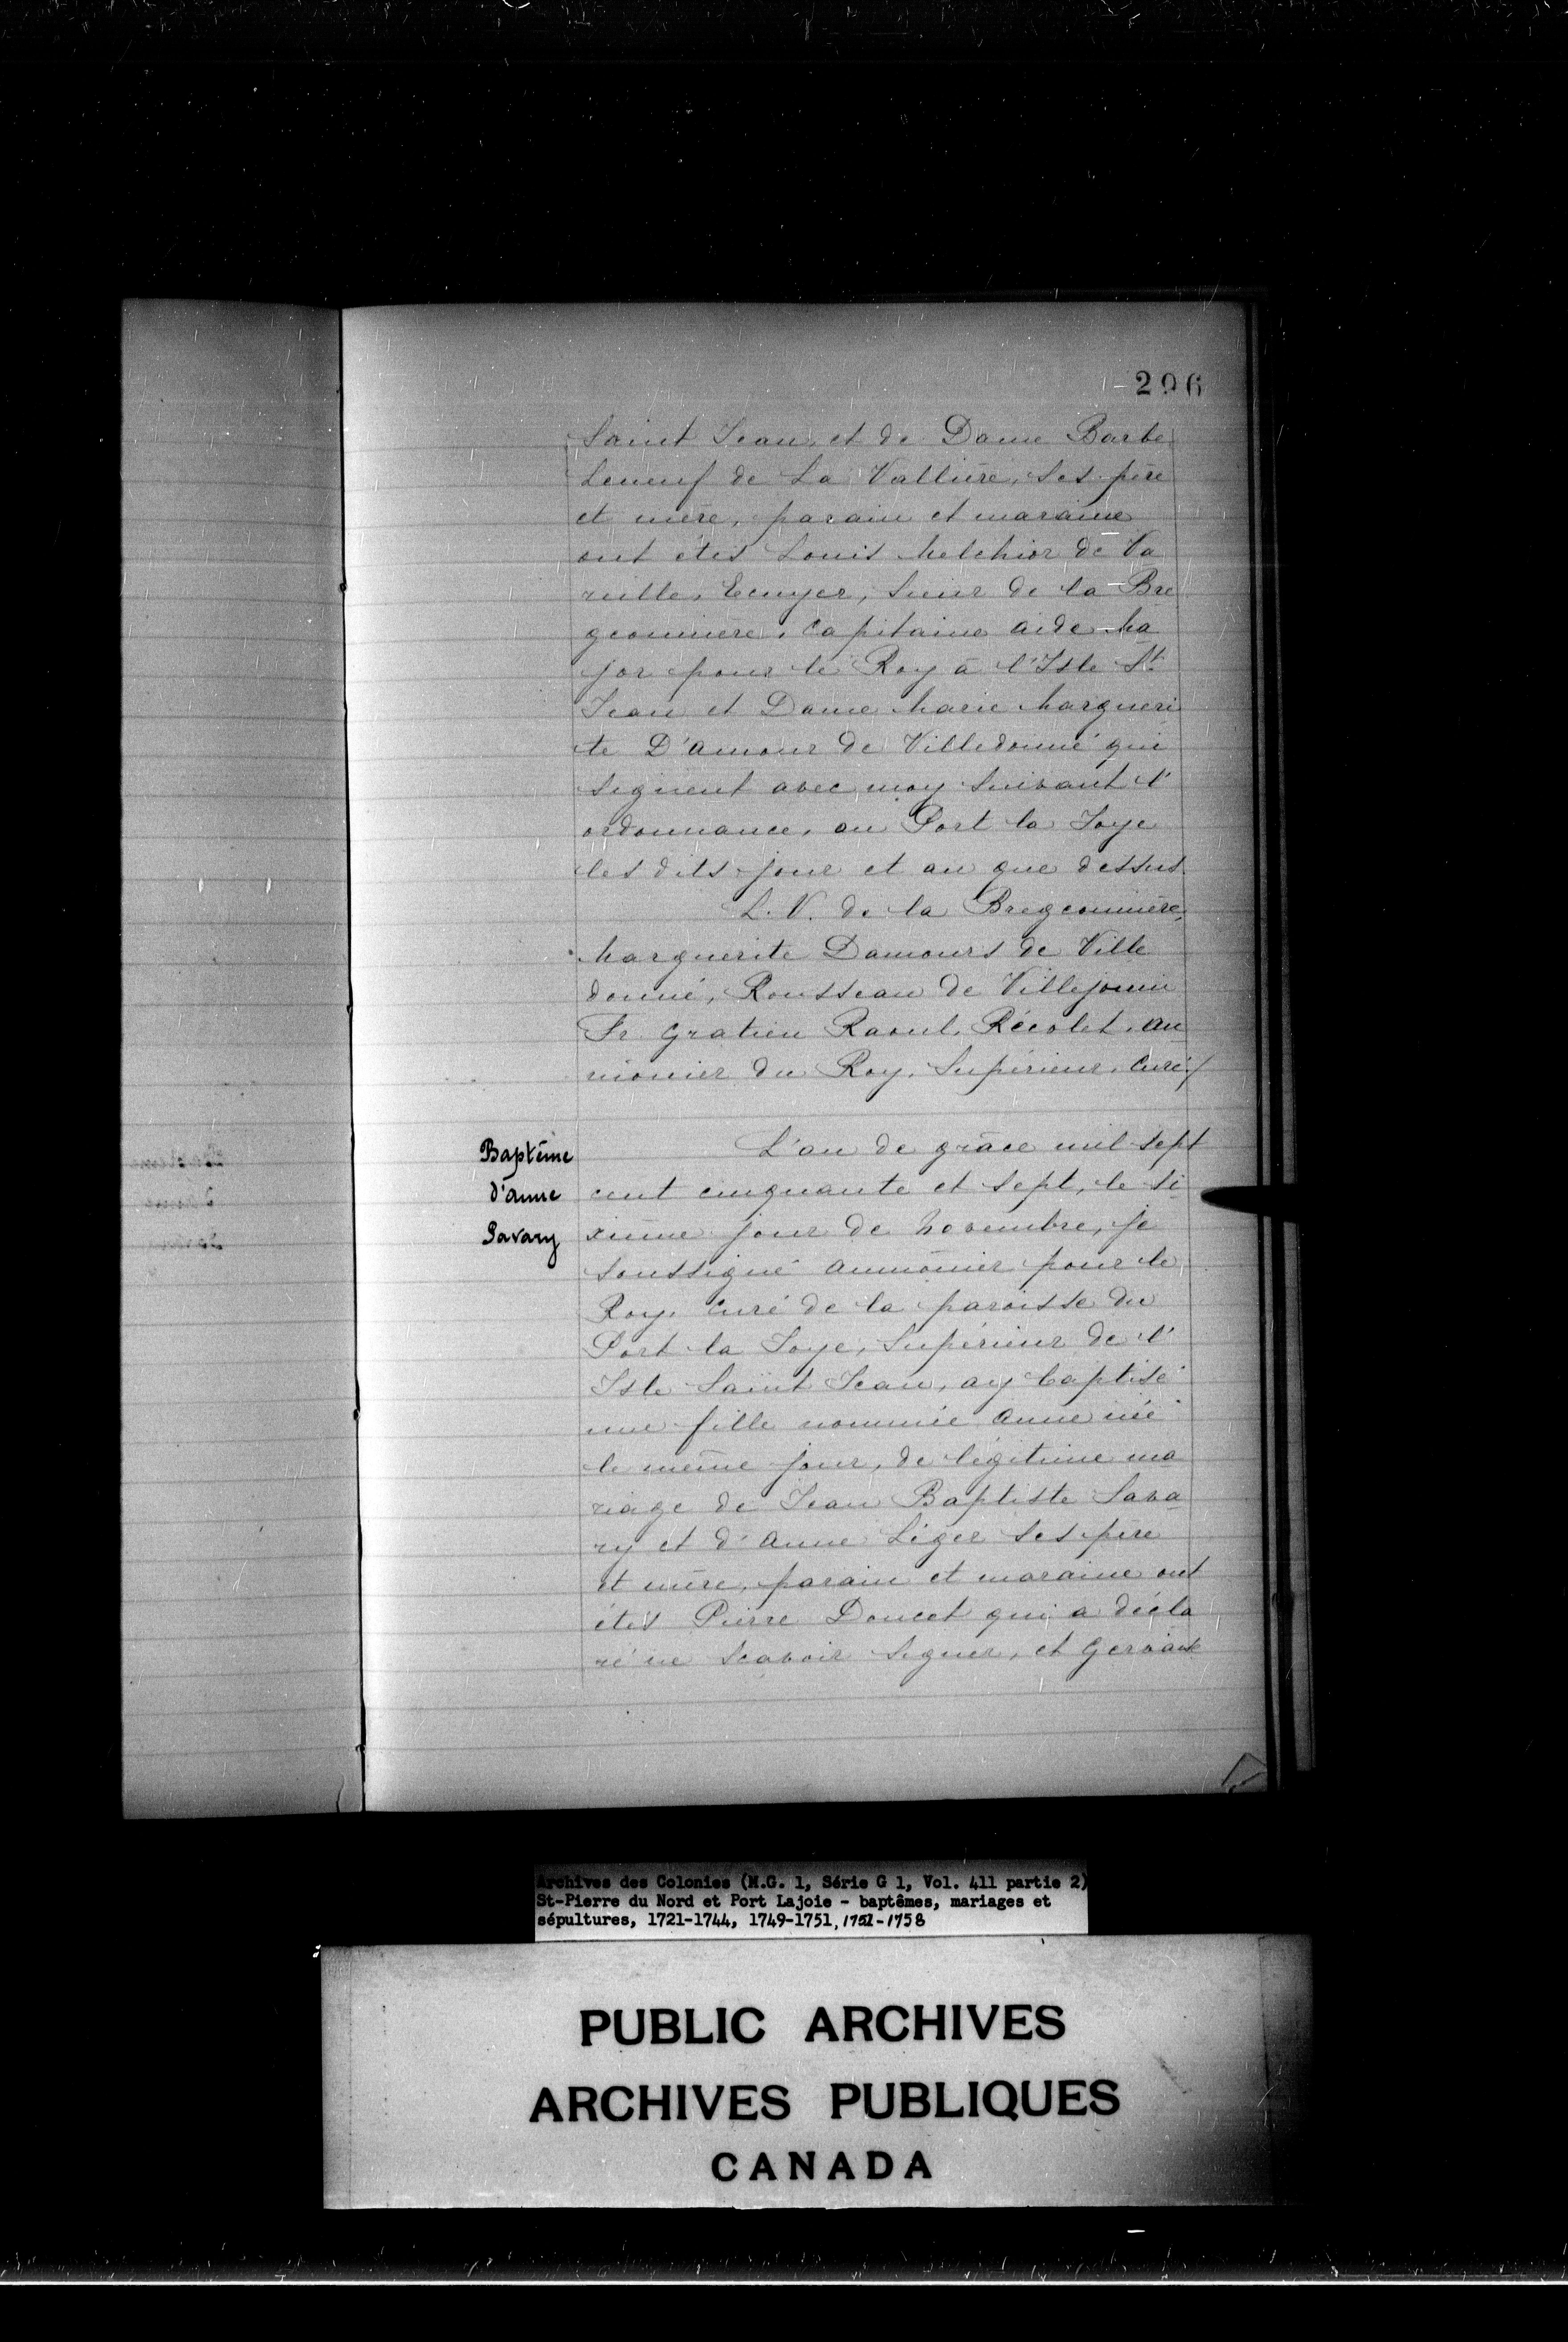 296
Saint Jean, et de Dame Barbe
Leneuf de La Vallière, ses père
et mère, parain et maraine
ont étes Louis Melchior de Va
reille, Ecuyer, Sieur de la Bre
geonniere, Capitaine aide Ma
jor pour le Roy à l'Isle St
Jean et Dame Marie Margueri
te D'amour de Villedonné qui
signent avec moy suivant l'
ordonnance, au Port la Joye
les dits jour et an que dessus.
L. V. de la Bregeonnière,
Marguerite Damours de Ville
donné, Rousseau de Villejouin
Fr. Gratien Raoul, Récolet, au
mônier du Roy, Supérieur, Curé/
Baptême
d'anne
Savary
L'an de grâce mil sept
cent cinquante et sept, le si-
xième jour de Novembre, je
soussigné aumônier pour le
Roy, Curé de la paroisse du
Port la Joye, Supérieur de l'
Isle Saint Jean, ay baptisé
une fille nommée anne née
le même jour, de légitime ma
riage de Jean Baptiste Sava-
ry et d'anne Léger ses père
et mère, parain et maraine ont
étes Pierre Doucet qui a décla
ré ne scavoir signer, et Gervaise
Archives des Colonies (M.G. 1, Série G 1, Vol. 411 partie 2)
St-Pierre du Nord et Port Lajoie - baptêmes, mariages et
sépultures, 1721-1744, 1749-1751, 1751-1758
PUBLIC ARCHIVES
ARCHIVES PUBLIQUES
CANADA